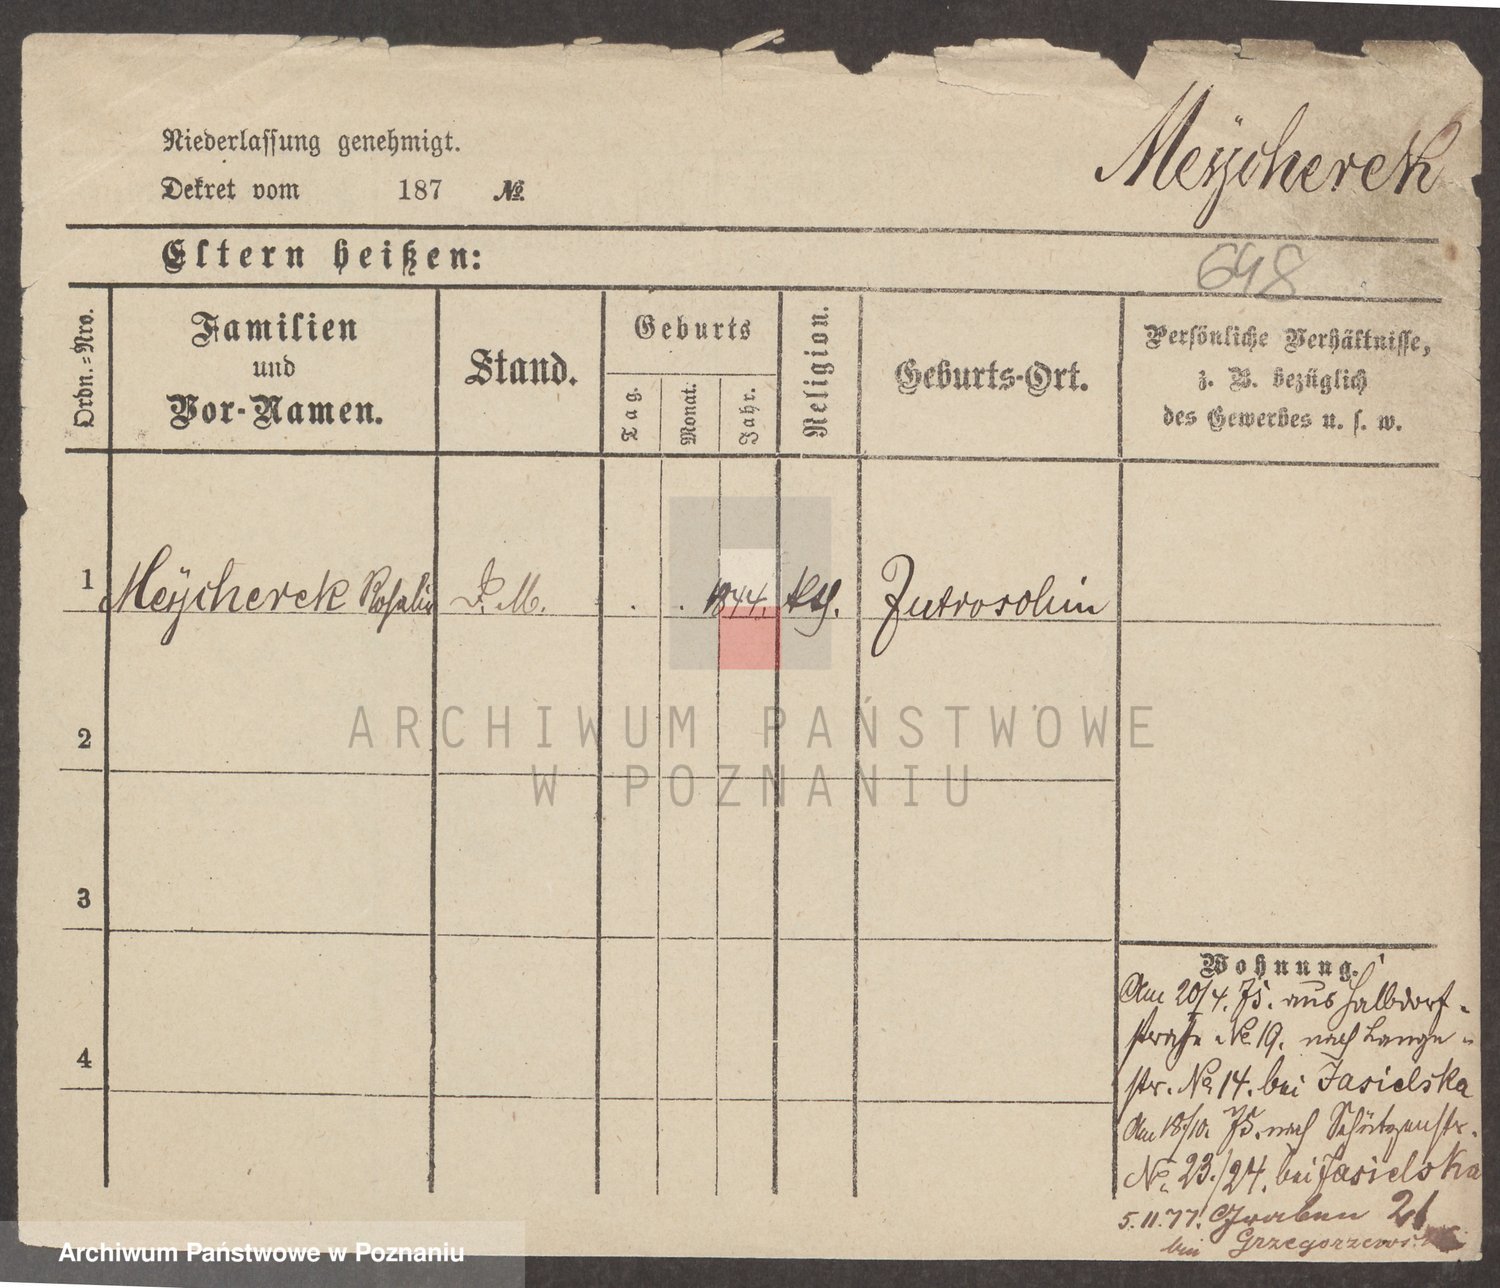 Meÿcherek
Niederlassung genehmigt.
Dekret vom 187 №
Eltern heißen:
648
Ordn.=Nro.
Familien
und
Vor-Namen.
Stand.
Geburts
Tag.
Monat.
Jahr.
Religion.
Geburts-Ort.
Persönliche Verhältnisse,
z. B. bezüglich
des Gewerbes u. s. w.
1 Meÿcherek Rosalie D. M. . . 1844. kth. Jutroschin
2
3
4
ARCHIWUM PAŃSTWOWE
W POZNANIU
Wohnung.
Am 20/4. 75. aus Halbdorf-
straße № 19. nach Lange-
str. № 14. bei Jasielska
Am 18/10. 75. nach Schützenstr.
№ 23./24. bei Jasielska
5.11.77. Graben 21
bei
Archiwum Państwowe w Poznaniu